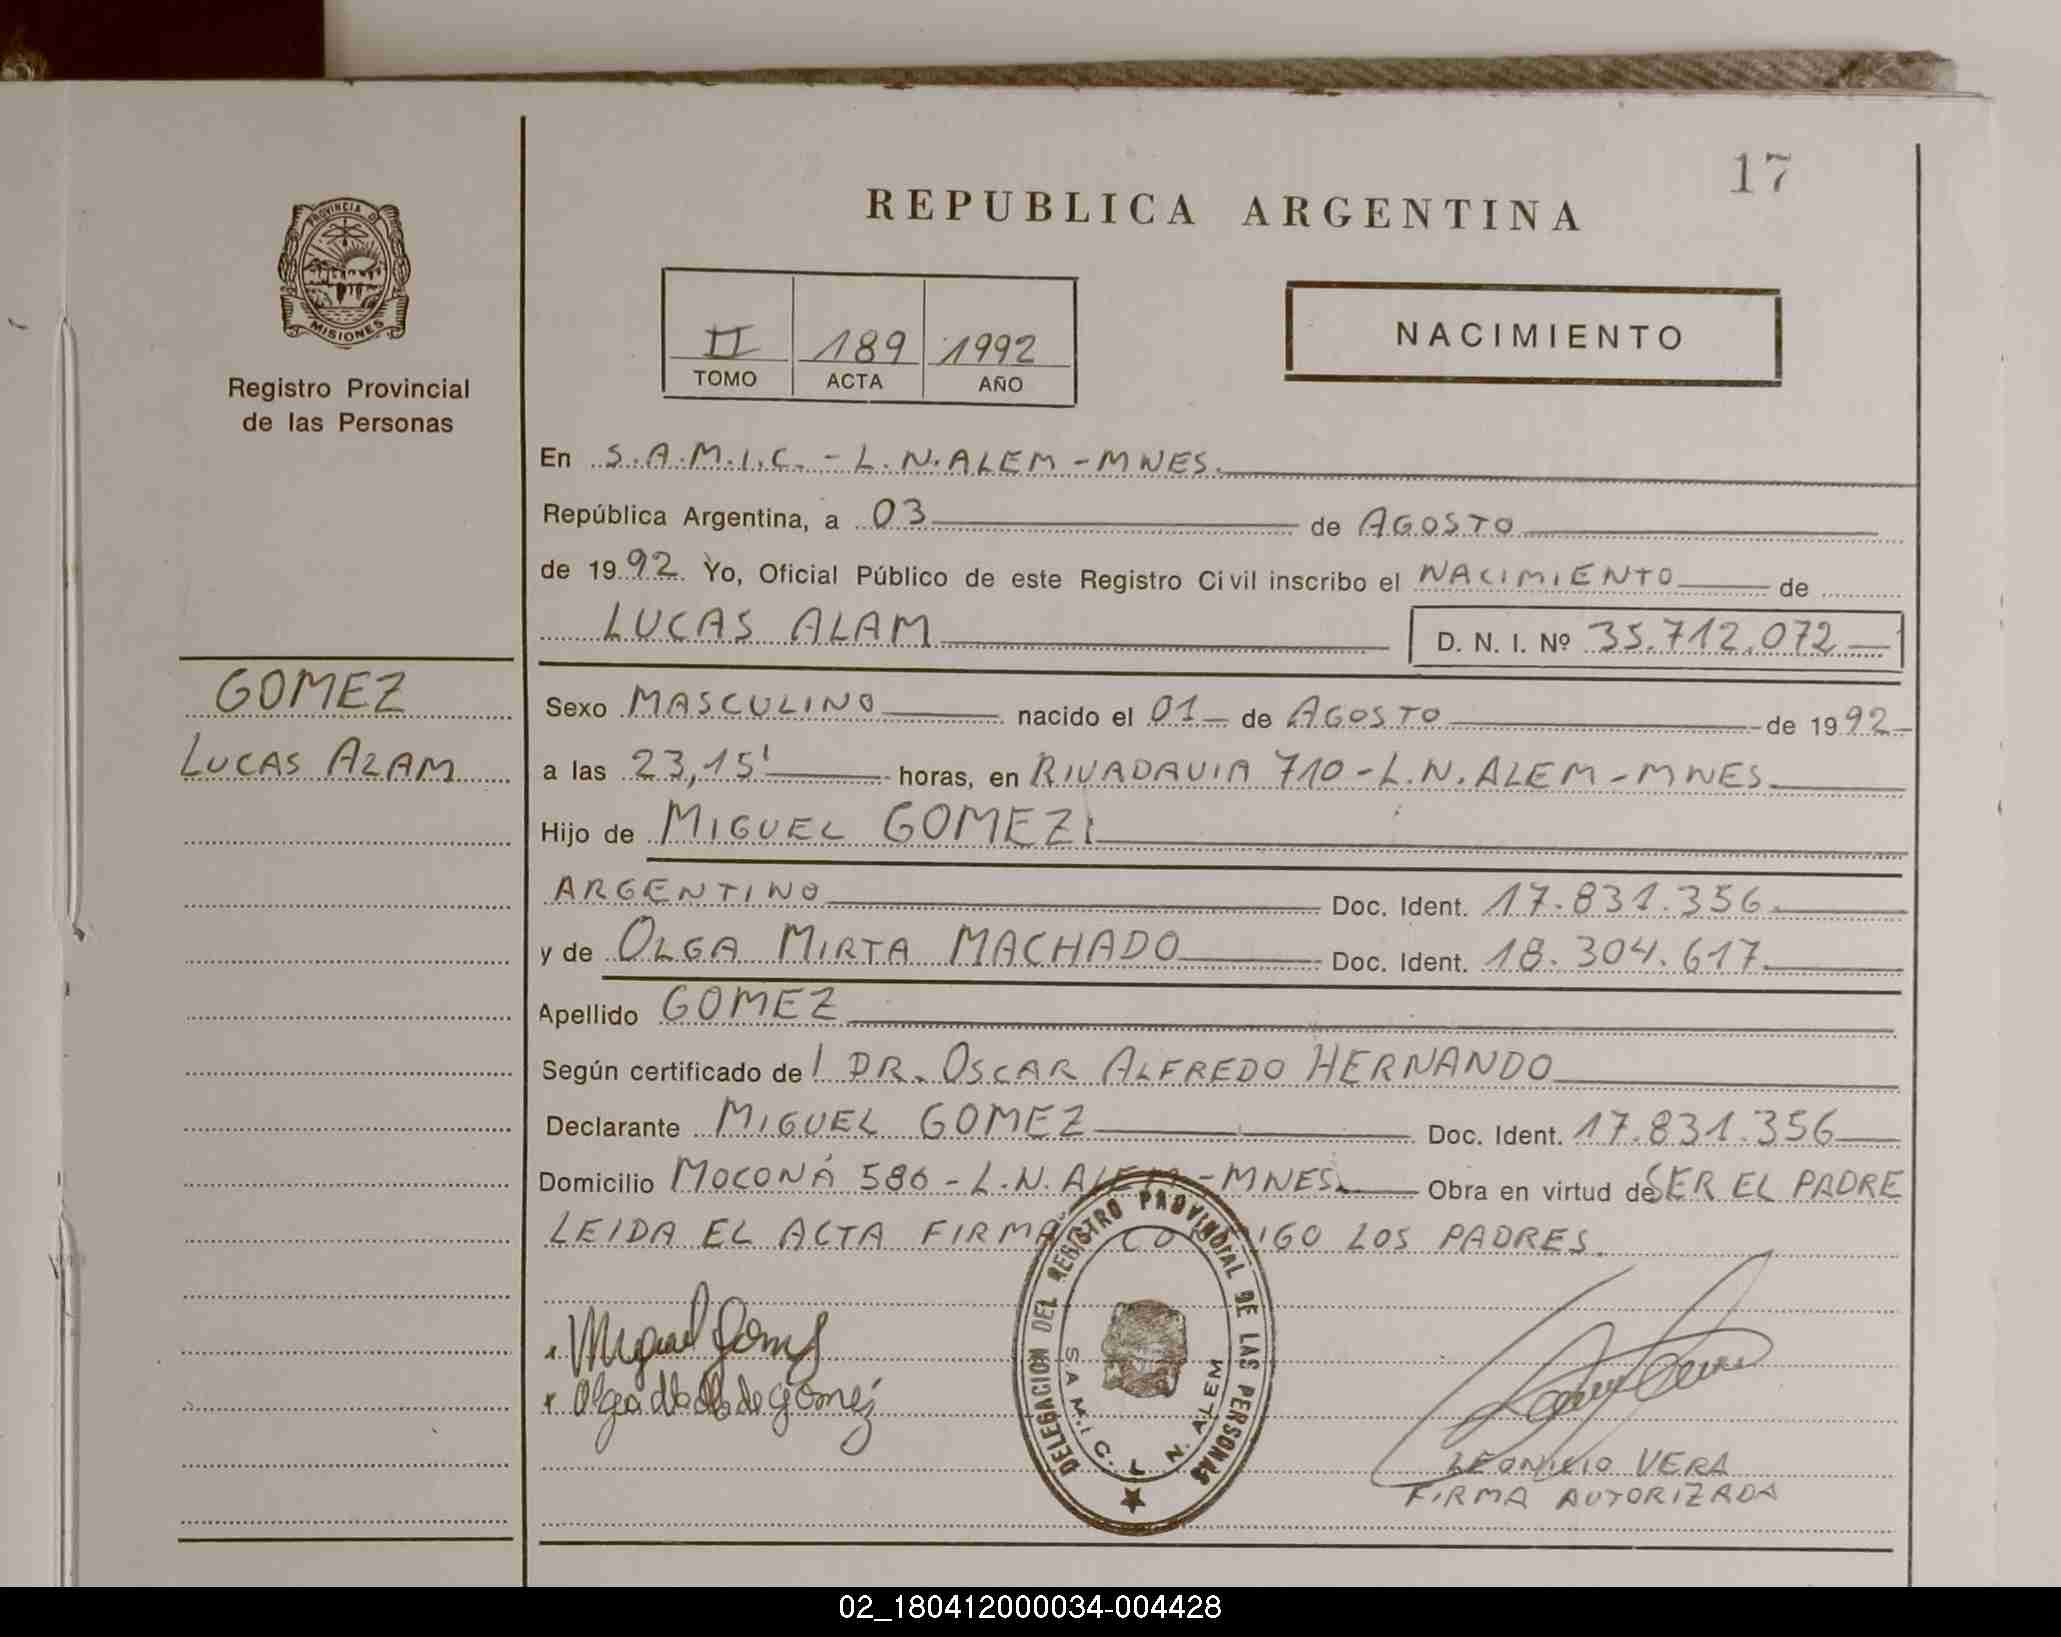 17
REPUBLICA ARGENTINA
PROVINCIA D
MISIONES
Registro Provincial
de las Personas
II 189 1992
TOMO ACTA AÑO
NACIMIENTO
En S.A.M.I.C. - L.N.ALEM - MNES.
República Argentina, a 03 de AGOSTO
de 1992 Yo, Oficial Público de este Registro Civil inscribo el NACIMIENTO de
LUCAS ALAM D. N. I. Nº 35.712.072
GOMEZ
LUCAS ALAM
Sexo MASCULINO nacido el 01 de AGOSTO de 1992
a las 23,15' horas, en RIVADAVIA 710 - L.N.ALEM - MNES
Hijo de MIGUEL GOMEZ
ARGENTINO Doc. Ident. 17.831.356.
y de OLGA MIRTA MACHADO Doc. Ident. 18.304.617.
Apellido GOMEZ
Según certificado de l DR. OSCAR ALFREDO HERNANDO
Declarante MIGUEL GOMEZ Doc. Ident. 17.831.356
Domicilio MOCONÁ 586 - L.N. ALEM - MNES. Obra en virtud de SER EL PADRE
LEIDA EL ACTA FIRMAN CONMIGO LOS PADRES.
Miguel Gomez
Olga de Gomez
DELEGACION DEL REGISTRO PROVINCIAL DE LAS PERSONAS
S.A.M.I.C. L. N. ALEM
LEONICIO VERA
FIRMA AUTORIZADA
02_180412000034-004428